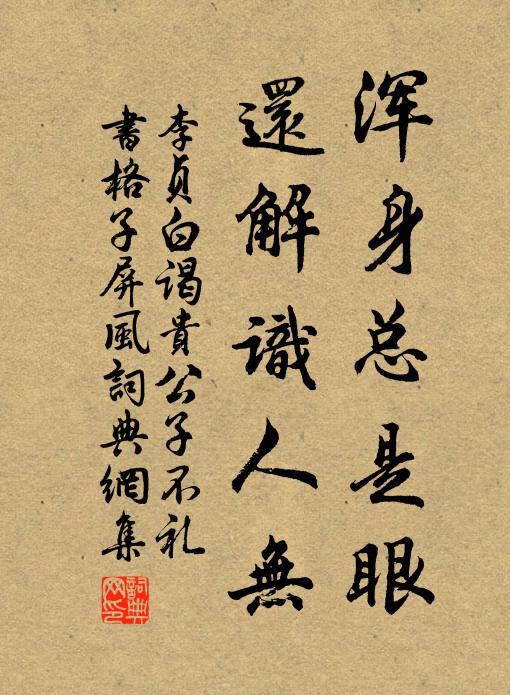 浑身总是眼
還解識人無
李贞白謁貴公子不礼
書格子屏風詞典網集
詞典
网印